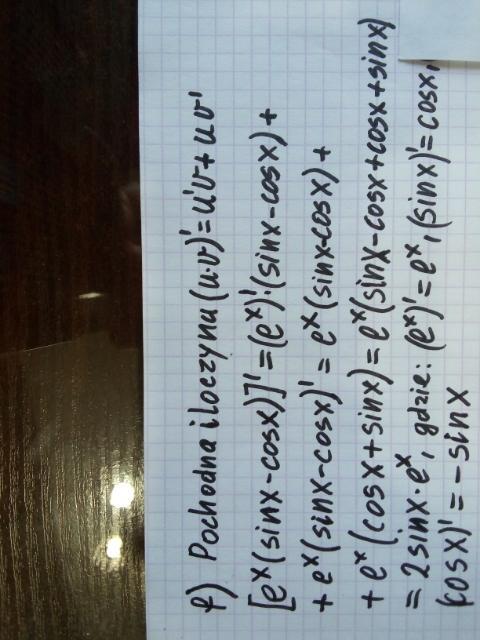 f) Pochodna iloczynu (u·v)'=u'v+uv'
[eˣ(sinx-cosx)]'=(eˣ)'·(sinx-cosx)+
+eˣ(sinx-cosx)'=eˣ(sinx-cosx)+
+eˣ(cosx+sinx)=eˣ(sinx-cosx+cosx+sinx)
=2sinx·eˣ, gdzie: (eˣ)'=eˣ, (sinx)'=cosx,
(cosx)'=-sinx